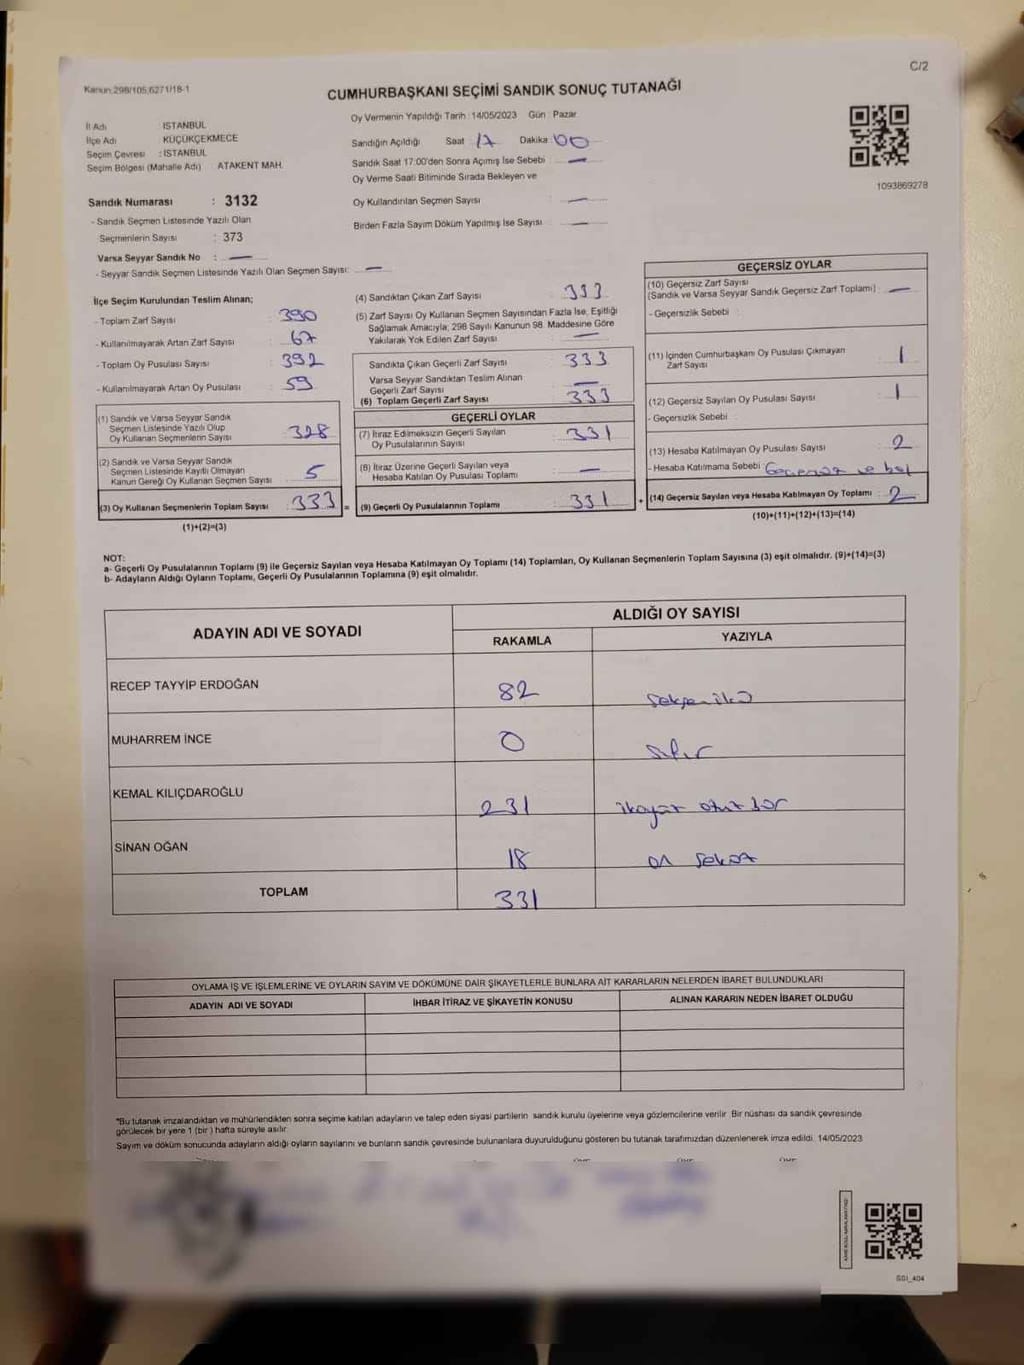 C/2
Kanun:298/105;6271/18-1
CUMHURBAŞKANI SEÇİMİ SANDIK SONUÇ TUTANAĞI
Oy Vermenin Yapıldığı Tarih : 14/05/2023 Gün : Pazar
İl Adı İSTANBUL
İlçe Adı KÜÇÜKÇEKMECE
Seçim Çevresi : İSTANBUL
Seçim Bölgesi (Mahalle Adı) ATAKENT MAH.
Sandığın Açıldığı Saat 17 Dakika 00
Sandık Saat 17:00'den Sonra Açımış İse Sebebi —
Oy Verme Saati Bitiminde Sırada Bekleyen ve
Oy Kullandırılan Seçmen Sayısı —
Birden Fazla Sayım Döküm Yapılmış İse Sayısı —
1093869278
Sandık Numarası : 3132
- Sandık Seçmen Listesinde Yazılı Olan
Seçmenlerin Sayısı : 373
Varsa Seyyar Sandık No : —
- Seyyar Sandık Seçmen Listesinde Yazılı Olan Seçmen Sayısı: —
İlçe Seçim Kurulundan Teslim Alınan;
- Toplam Zarf Sayısı : 390
- Kullanılmayarak Artan Zarf Sayısı : 67
- Toplam Oy Pusulası Sayısı : 392
- Kullanılmayarak Artan Oy Pusulası : 59
(1) Sandık ve Varsa Seyyar Sandık
Seçmen Listesinde Yazılı Olup
Oy Kullanan Seçmenlerin Sayısı : 328
(2) Sandık ve Varsa Seyyar Sandık
Seçmen Listesinde Kayıtlı Olmayan
Kanun Gereği Oy Kullanan Seçmen Sayısı : 5
(3) Oy Kullanan Seçmenlerin Toplam Sayısı : 333 =
(1)+(2)=(3)
(4) Sandıktan Çıkan Zarf Sayısı : 333
(5) Zarf Sayısı Oy Kullanan Seçmen Sayısından Fazla İse, Eşitliği
Sağlamak Amacıyla; 298 Sayılı Kanunun 98. Maddesine Göre
Yakılarak Yok Edilen Zarf Sayısı —
Sandıkta Çıkan Geçerli Zarf Sayısı : 333
Varsa Seyyar Sandıktan Teslim Alınan
Geçerli Zarf Sayısı : —
(6) Toplam Geçerli Zarf Sayısı : 333
GEÇERLİ OYLAR
(7) İtiraz Edilmeksizin Geçerli Sayılan
Oy Pusulalarının Sayısı : 331
(8) İtiraz Üzerine Geçerli Sayılan veya
Hesaba Katılan Oy Pusulası Toplamı : —
(9) Geçerli Oy Pusulalarının Toplamı : 331 +
GEÇERSİZ OYLAR
(10) Geçersiz Zarf Sayısı
[Sandık ve Varsa Seyyar Sandık Geçersiz Zarf Toplamı] : —
- Geçersizlik Sebebi :
(11) İçinden Cumhurbaşkanı Oy Pusulası Çıkmayan
Zarf Sayısı : 1
(12) Geçersiz Sayılan Oy Pusulası Sayısı : 1
- Geçersizlik Sebebi :
(13) Hesaba Katılmayan Oy Pusulası Sayısı : 2
- Hesaba Katılmama Sebebi : Geçersiz ve
(14) Geçersiz Sayılan veya Hesaba Katılmayan Oy Toplamı : 2
(10)+(11)+(12)+(13)=(14)
NOT:
a- Geçerli Oy Pusulalarının Toplamı (9) ile Geçersiz Sayılan veya Hesaba Katılmayan Oy Toplamı (14) Toplamları, Oy Kullanan Seçmenlerin Toplam Sayısına (3) eşit olmalıdır. (9)+(14)=(3)
b- Adayların Aldığı Oyların Toplamı, Geçerli Oy Pusulalarının Toplamına (9) eşit olmalıdır.
ADAYIN ADI VE SOYADI
ALDIĞI OY SAYISI
RAKAMLA YAZIYLA
RECEP TAYYİP ERDOĞAN 82 seksen iki
MUHARREM İNCE 0 sıfır
KEMAL KILIÇDAROĞLU 231 ikiyüz otuz bir
SİNAN OĞAN 18 on sekiz
TOPLAM 331
OYLAMA İŞ VE İŞLEMLERİNE VE OYLARIN SAYIM VE DÖKÜMÜNE DAİR ŞİKAYETLERLE BUNLARA AİT KARARLARIN NELERDEN İBARET BULUNDUKLARI
ADAYIN ADI VE SOYADI İHBAR İTİRAZ VE ŞİKAYETİN KONUSU ALINAN KARARIN NEDEN İBARET OLDUĞU
"Bu tutanak imzalandıktan ve mühürlendikten sonra seçime katılan adayların ve talep eden siyasi partilerin sandık kurulu üyelerine veya gözlemcilerine verilir. Bir nüshası da sandık çevresinde
görülecek bir yere 1 (bir) hafta süreyle asılır.
Sayım ve döküm sonucunda adayların aldığı oyların sayılarını ve bunların sandık çevresinde bulunanlara duyurulduğunu gösteren bu tutanak tarafımızdan düzenlenerek imza edildi. 14/05/2023
GGI_404